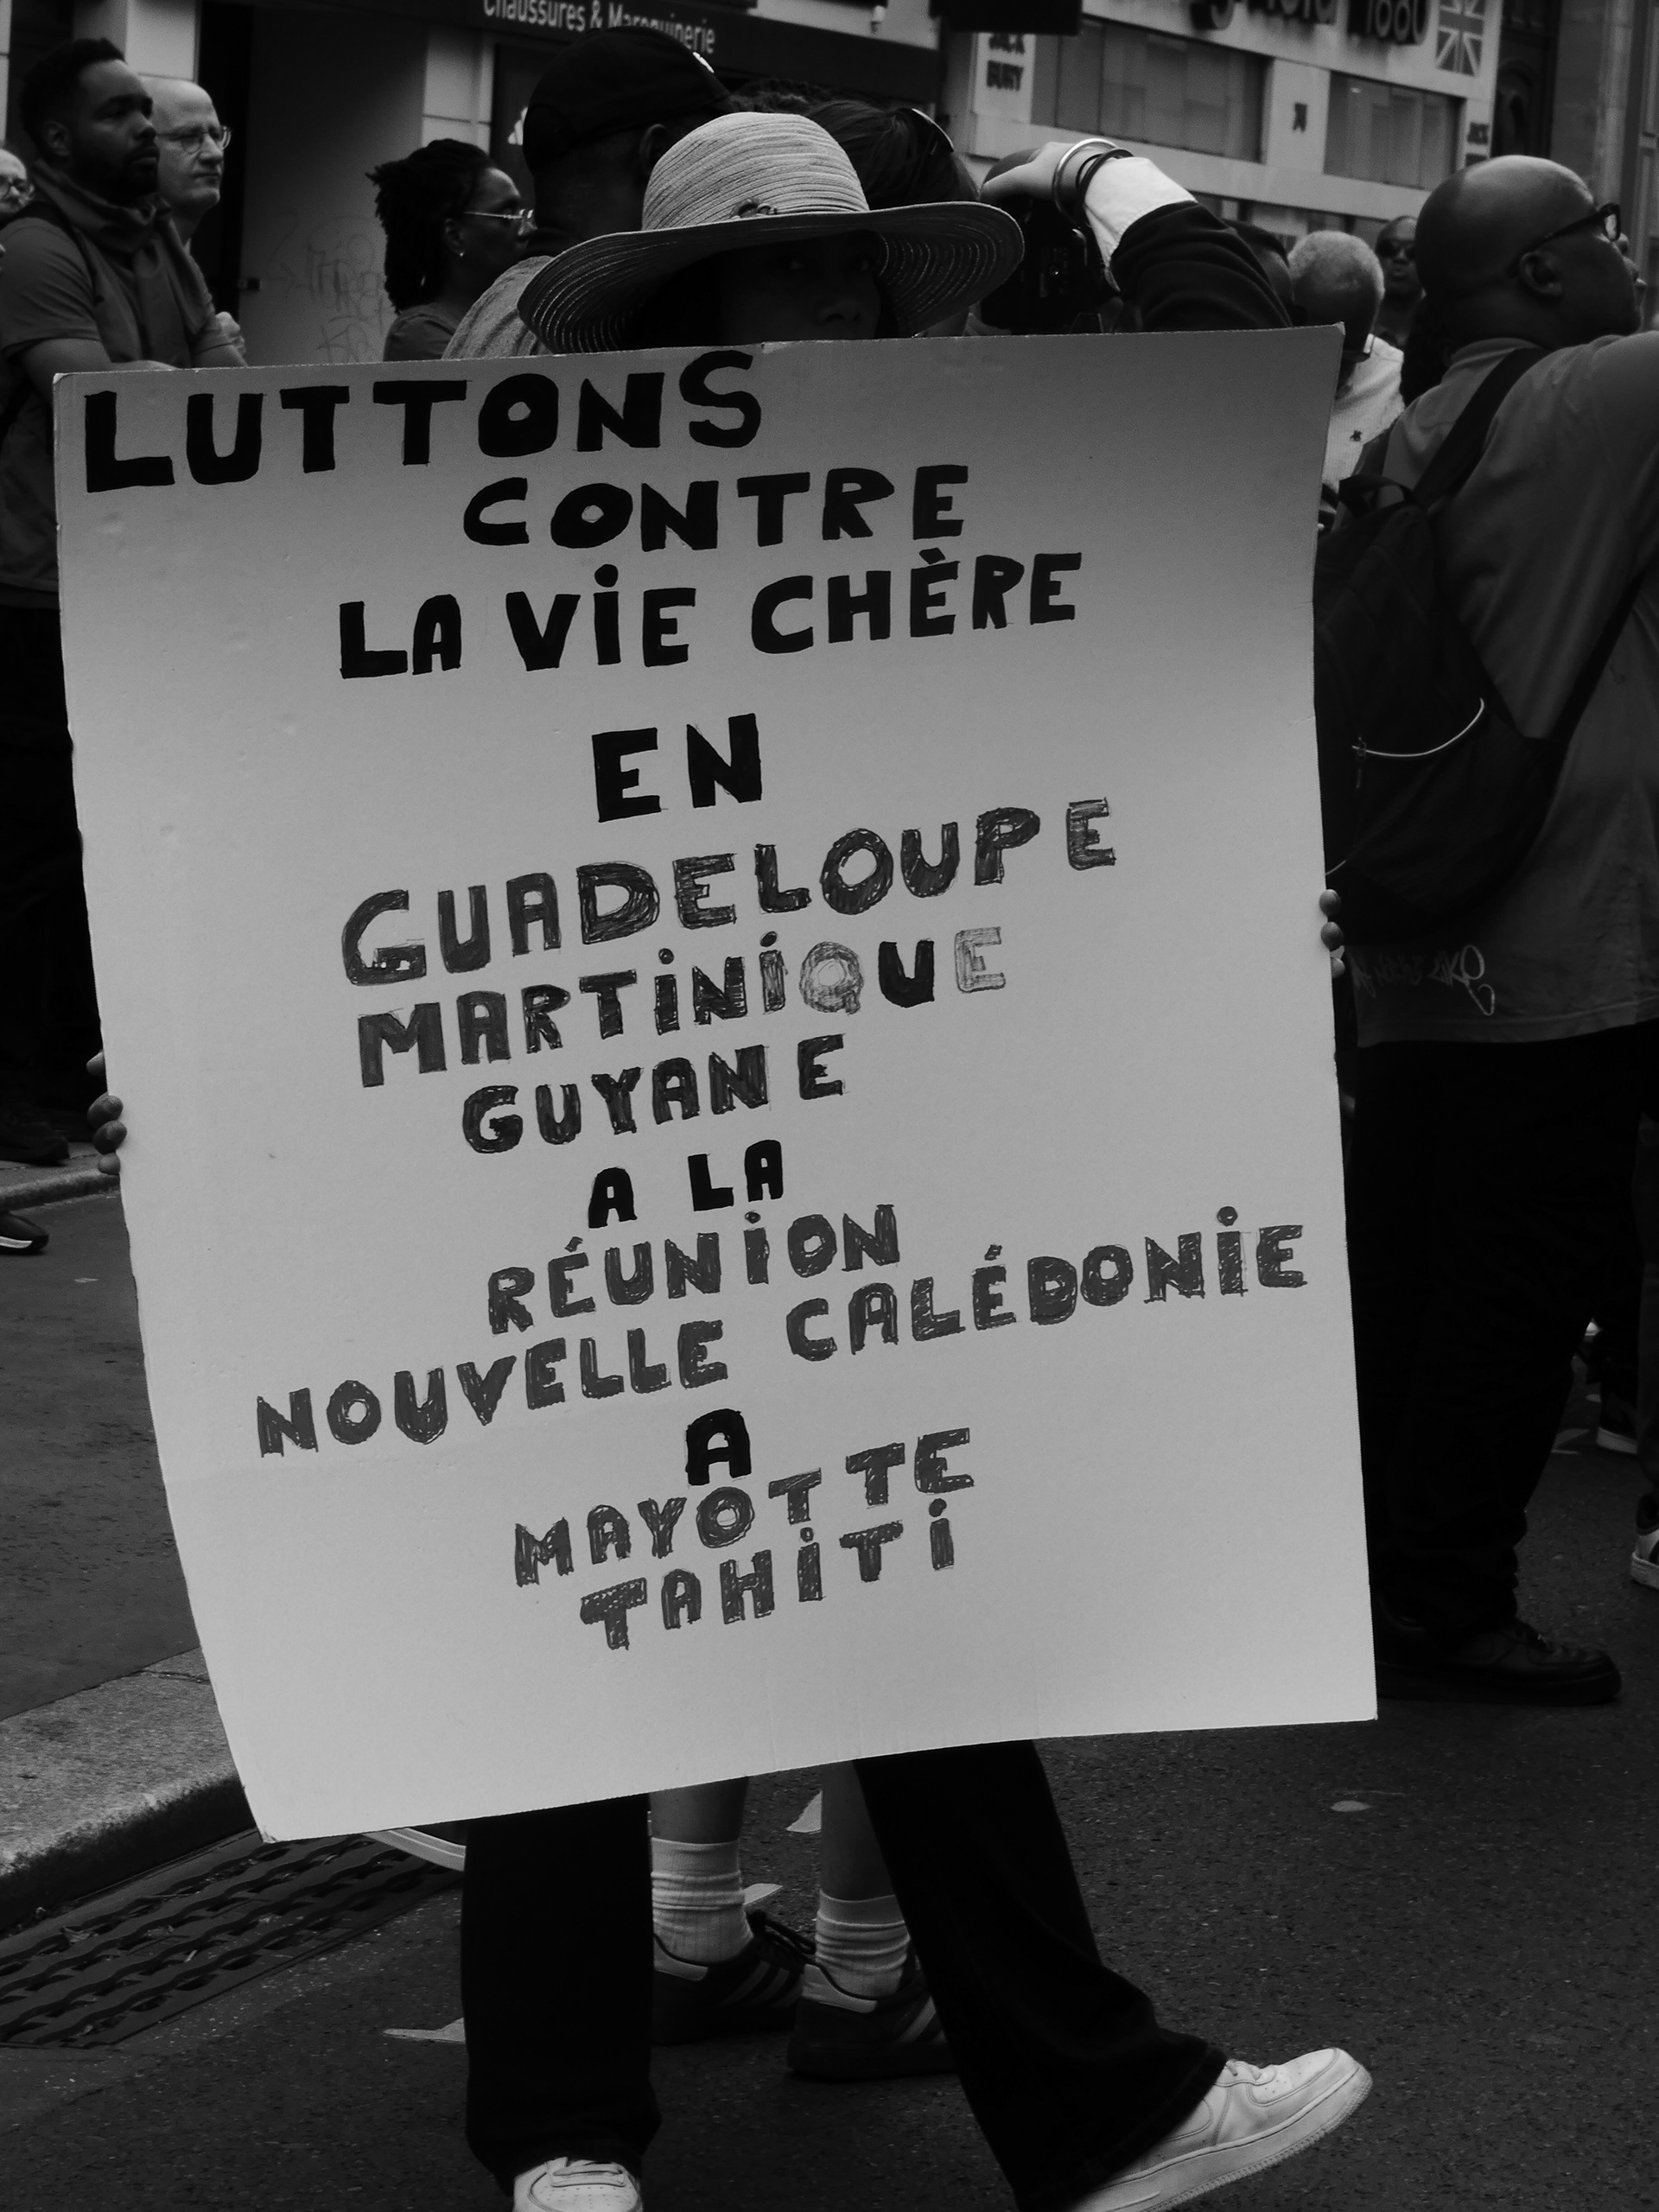 Chaussures & Maroquinerie
JACK
BURY
LUTTONS
CONTRE
LA ViE CHÈRE
EN
GUADELOUPE
MARTiNiQUE
GUYANE
A LA
RÉUNiON
NOUVELLE CALÉDONiE
A
MAYOTTE
TAHiTi